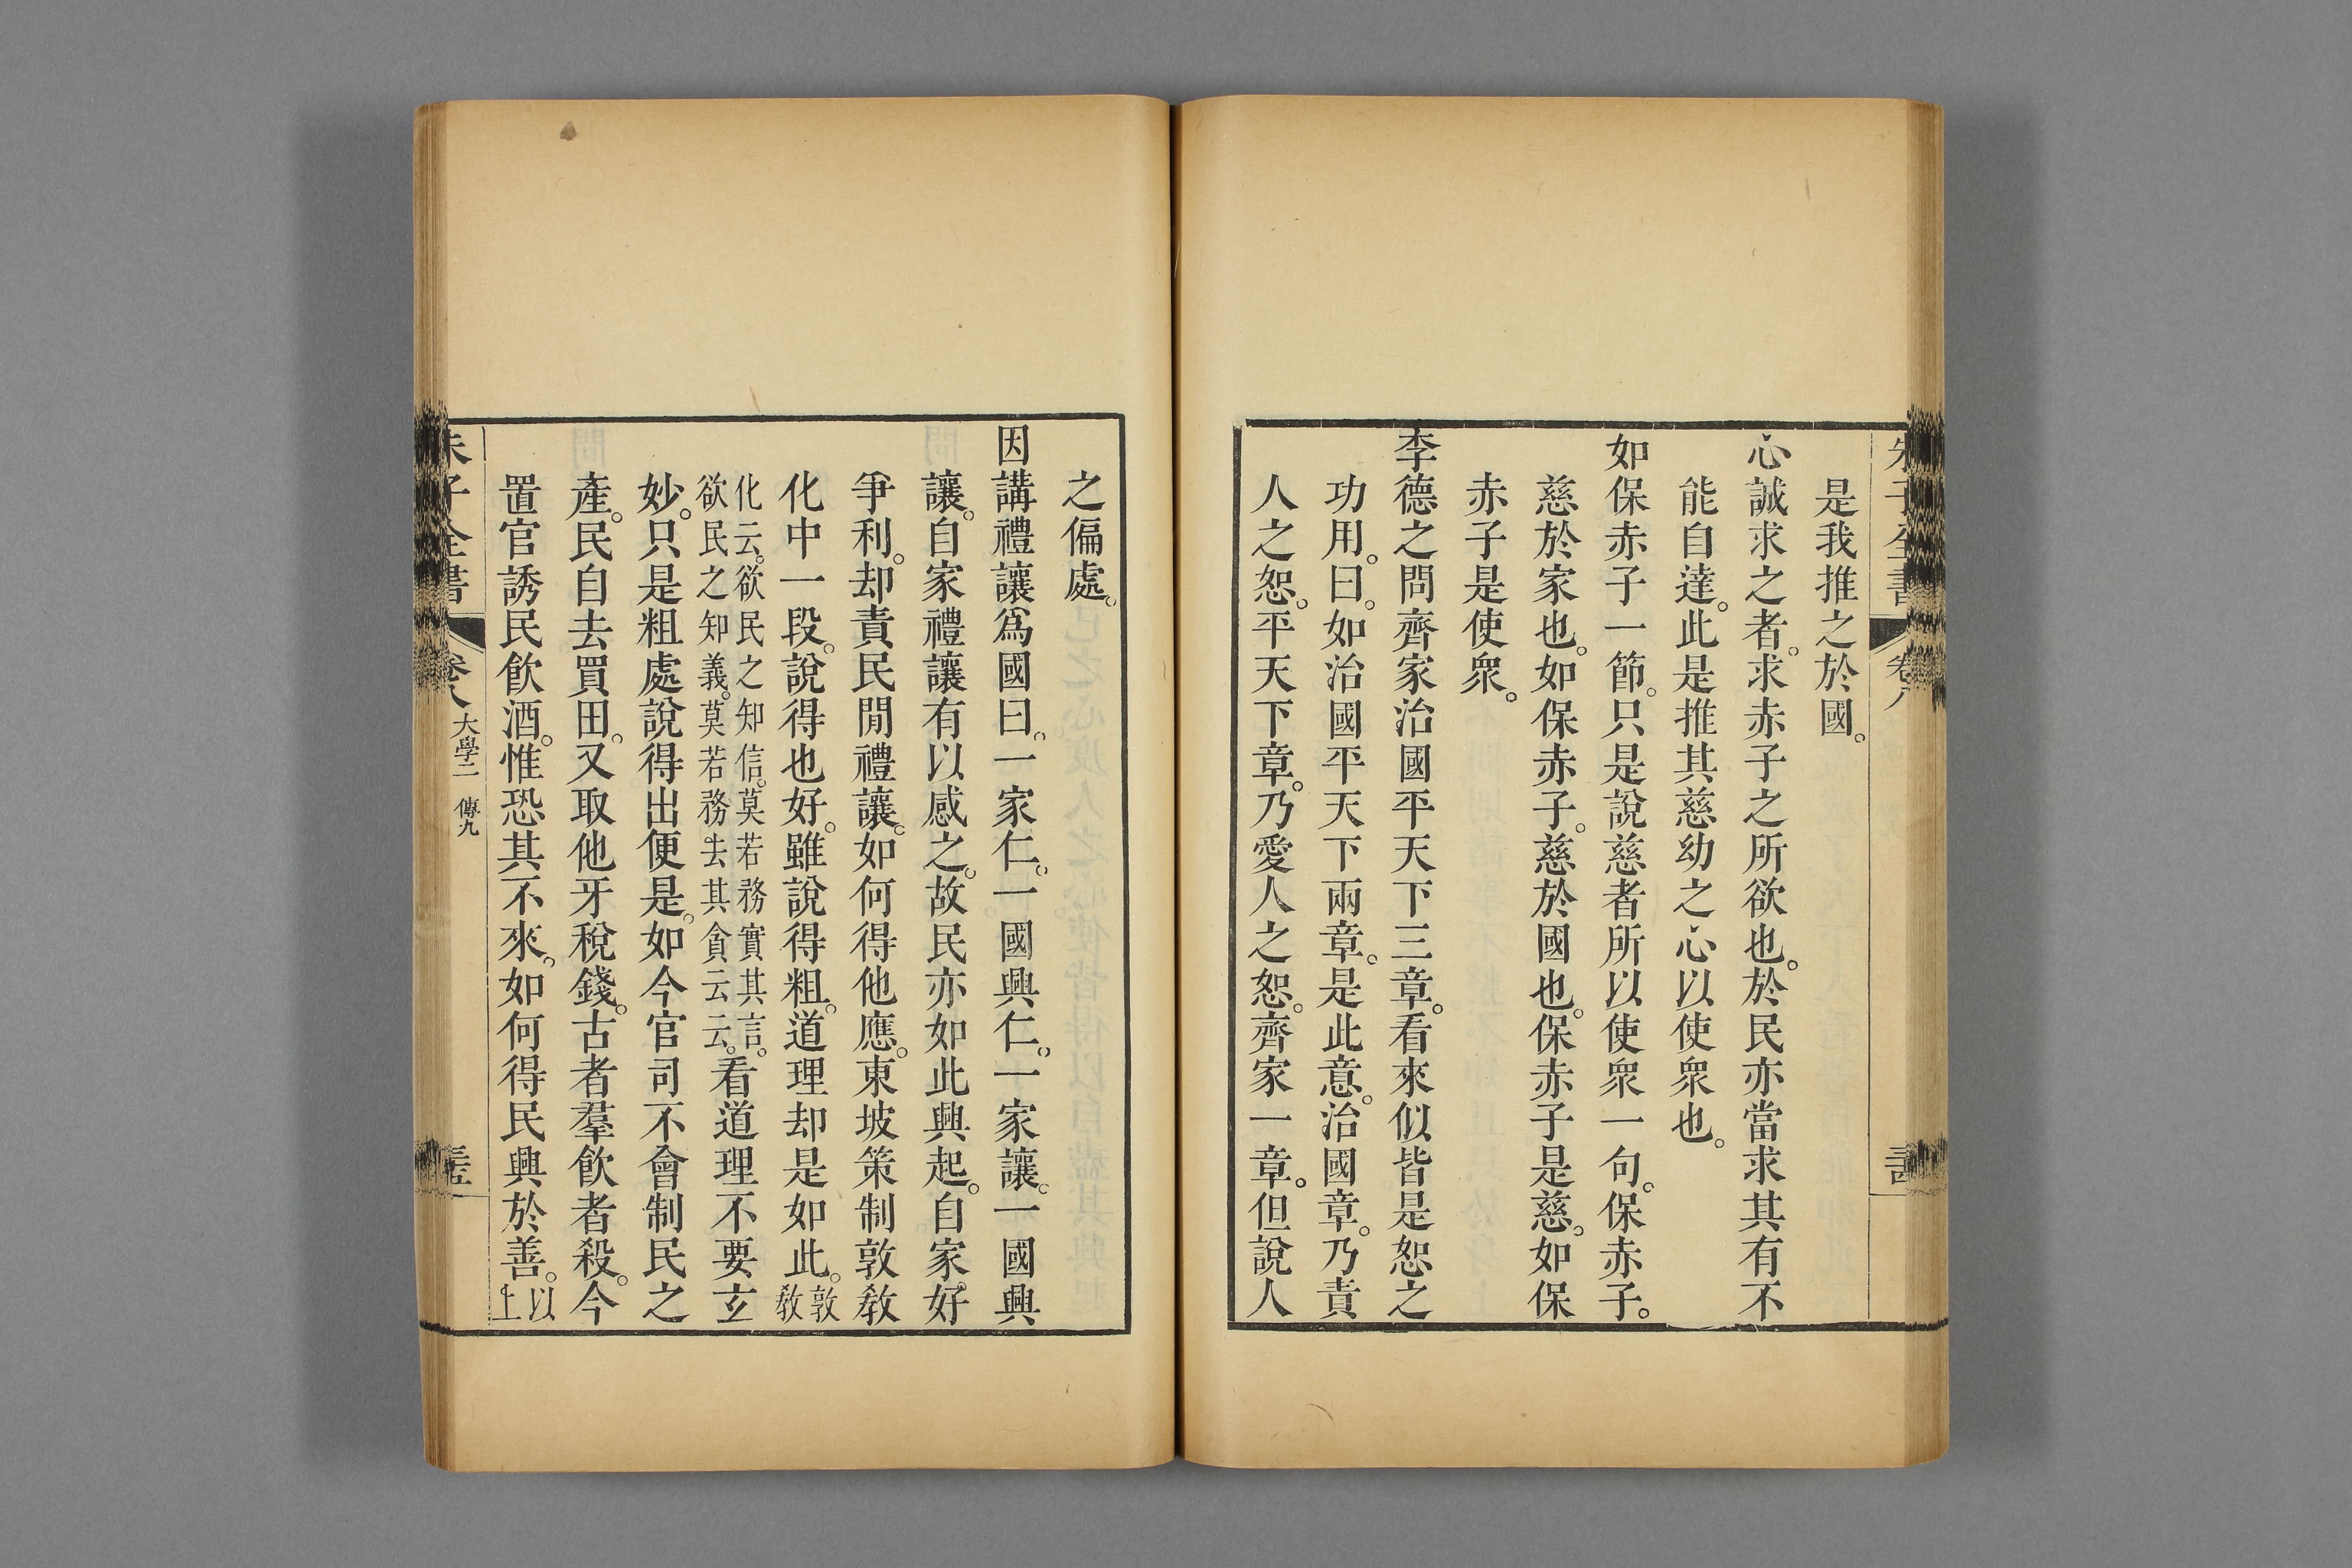 朱子全書 卷八
是我推之於國。
心誠求之者。求赤子之所欲也。於民亦當求其有不
能自達。此是推其慈幼之心以使衆也。
如保赤子一節。只是說慈者所以使衆一句。保赤子。
慈於家也。如保赤子。慈於國也。保赤子是慈。如保
赤子是使衆。
李德之問齊家治國平天下三章。看來似皆是恕之
功用。曰。如治國平天下兩章。是此意。治國章。乃責
人之恕。平天下章。乃愛人之恕。齊家一章。但說人
之偏處。
因講禮讓爲國曰。一家仁。一國興仁。一家讓。一國興
讓。自家禮讓有以感之。故民亦如此興起。自家好
爭利。却責民閒禮讓。如何得他應。東坡策制敦敎
化中一段。說得也好。雖說得粗。道理却是如此。敦敎
化云。欲民之知信。莫若務實其言。欲民之知義。莫若務去其貪云云。看道理不要玄
妙。只是粗處說得出便是。如今官司不會制民之
產。民自去買田。又取他牙稅錢。古者羣飮者殺。今
置官誘民飮酒。惟恐其不來。如何得民興於善。以上
朱子全書 卷八 大學二 傳九